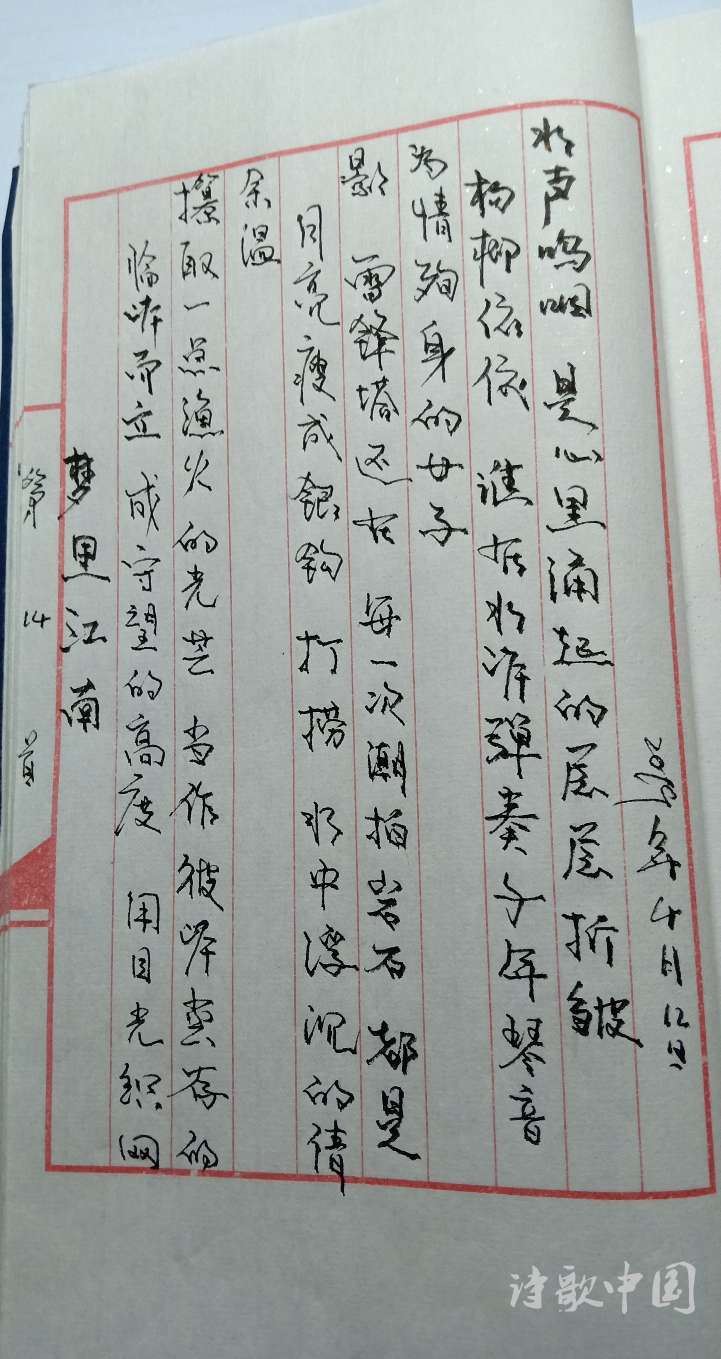 第 14 首
梦里江南
临岸而立 成守望的高度 用目光织网
撩取一点渔火的光芒 当作彼岸尚存的
余温
月亮瘦成銀钩 打捞 水中浮沉的倩
影 雷鋒塔还在 每一次潮拍岩石 都是
为情殉身的女子
杨柳依依 谁在水岸彈奏千年琴音
水声呜咽 是心里涌起的层层折皱
2019年十月12日
诗歌中国